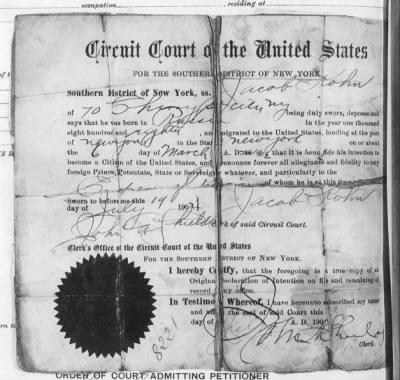 occupation residing at
Circuit Court of the United States
FOR THE SOUTHERN DISTRICT OF NEW YORK
Southern District of New York, ss. Jacob Kohn
of 70 City being duly sworn, deposes and
says that he was born in Russia In the year one thousand
eight hundred and eighty, and emigrated to the United States, landing at the port
of new york in the State new york on or about
the 6 day of March A. D. that it is bona fide his intention to
become a Citizen of the United States, and renounce forever all allegiance and fidelity to any
foreign Prince, Potentate, State or Sovereignty whatever, and particularly to the
of whom he is at this time
Sworn to before me this 19 Jacob Kohn
day of July 190
John A Shields Clerk of said Circuit Court.
Clerk's Office of the Circuit Court of the United States
FOR THE SOUTHERN DISTRICT OF NEW YORK.
I hereby Certify, that the foregoing is a true copy of
Original Declaration of Intention on file and remaining of
record in my office.
In Testimony Whereof, I have hereunto subscribed my name
and affixed the seal of said Court this
day of A. D. 190
Clerk.
8221
ORDER OF COURT ADMITTING PETITIONER